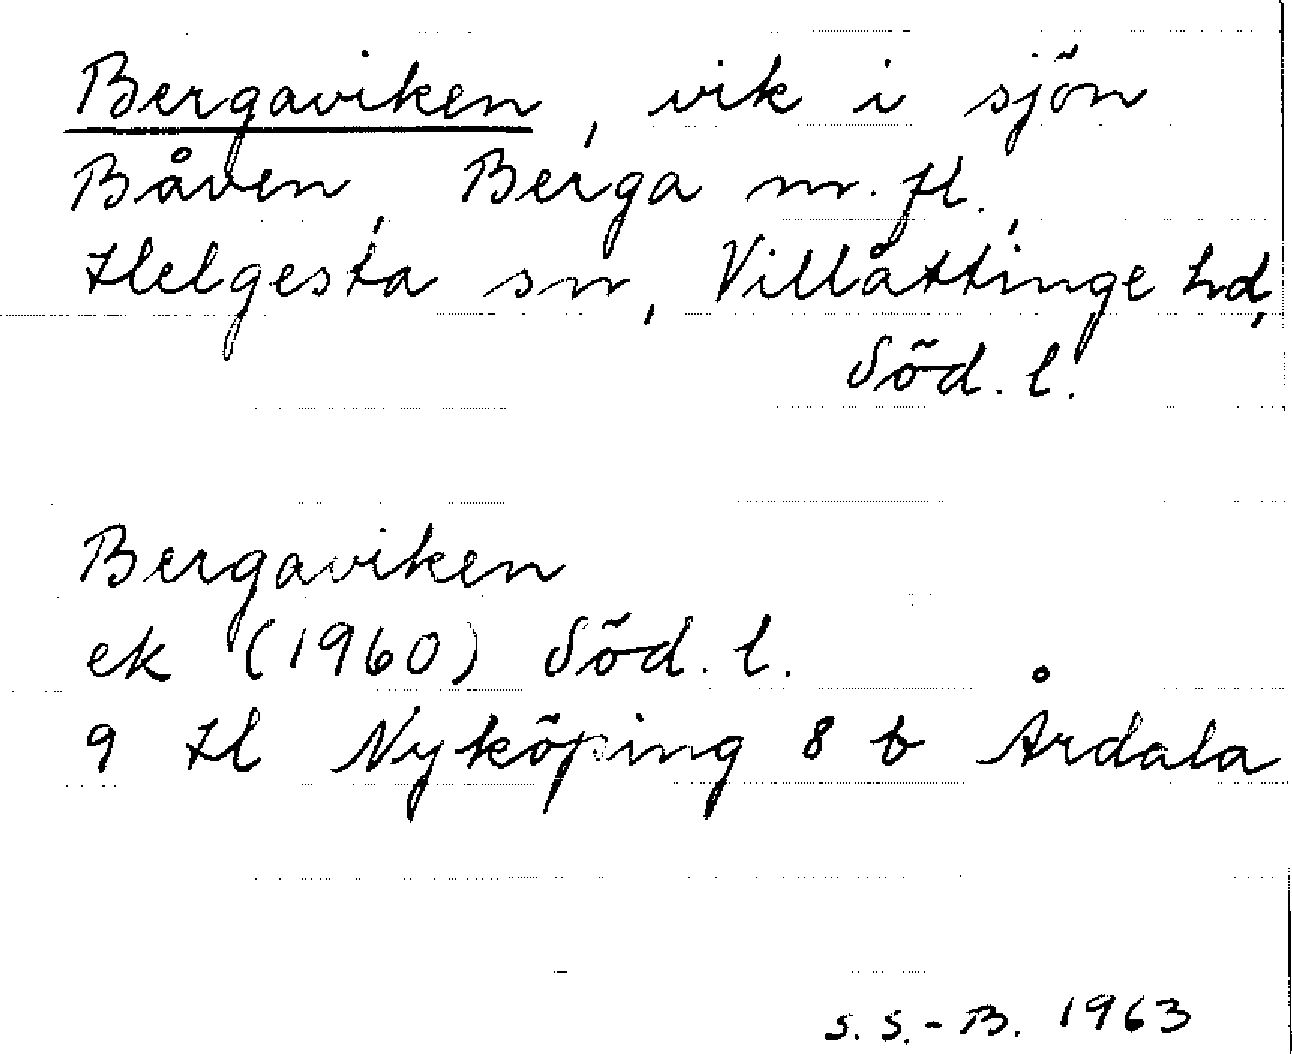 Bergaviken, vik i sjön
Båven, Berga m.fl.,
Helgesta sn, Villåttinge hd,
Söd. l.
Bergaviken
ek (1960) Söd. l.
9 H Nyköping 8 b Årdala
S. S.-B. 1963